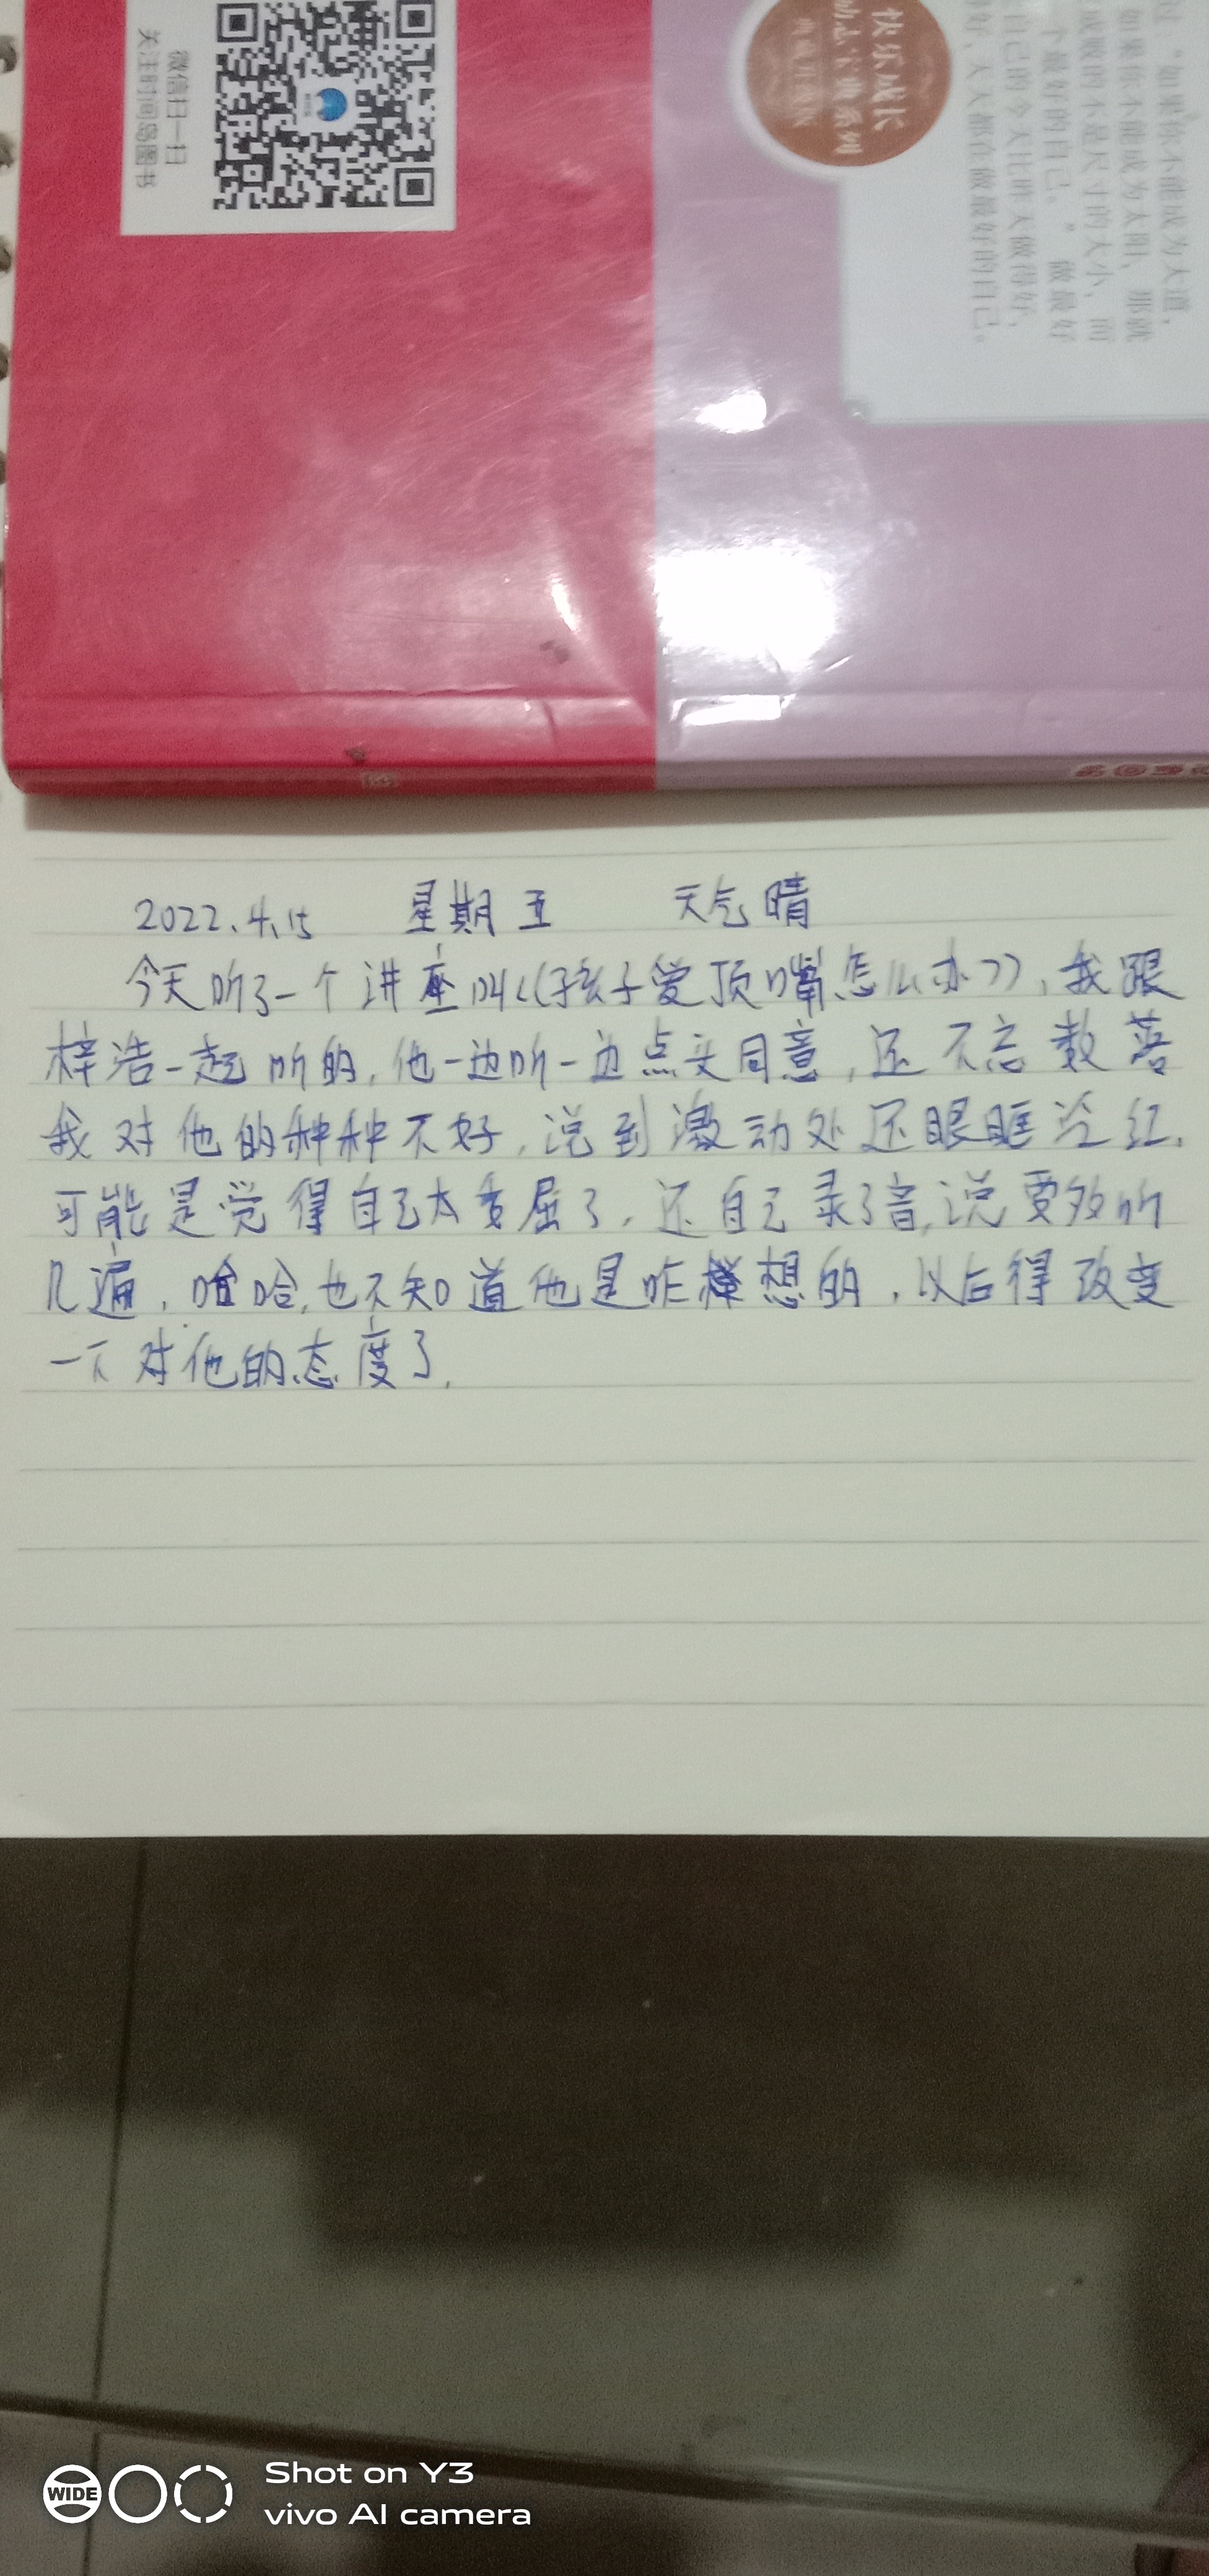 微信扫一扫
关注时间岛图书
快乐成长
"如果你不能成为大道，
如果你不能成为太阳，那就
成败的不是尺寸的大小，而
个最好的自己。"做最好
自己的今天比昨天做得好，
好，天天都在做最好的自己。
2022.4.15 星期五 天气晴
今天听了一个讲座叫《孩子爱顶嘴怎么办》，我跟
梓浩一起听的，他一边听一边点头同意，还不忘数落
我对他的种种不好，说到激动处还眼眶泛红，
可能是觉得自己太委屈了，还自己录了音，说要多听
几遍，哈哈，也不知道他是咋样想的，以后得改变
一下对他的态度了。
WIDE
Shot on Y3
vivo AI camera